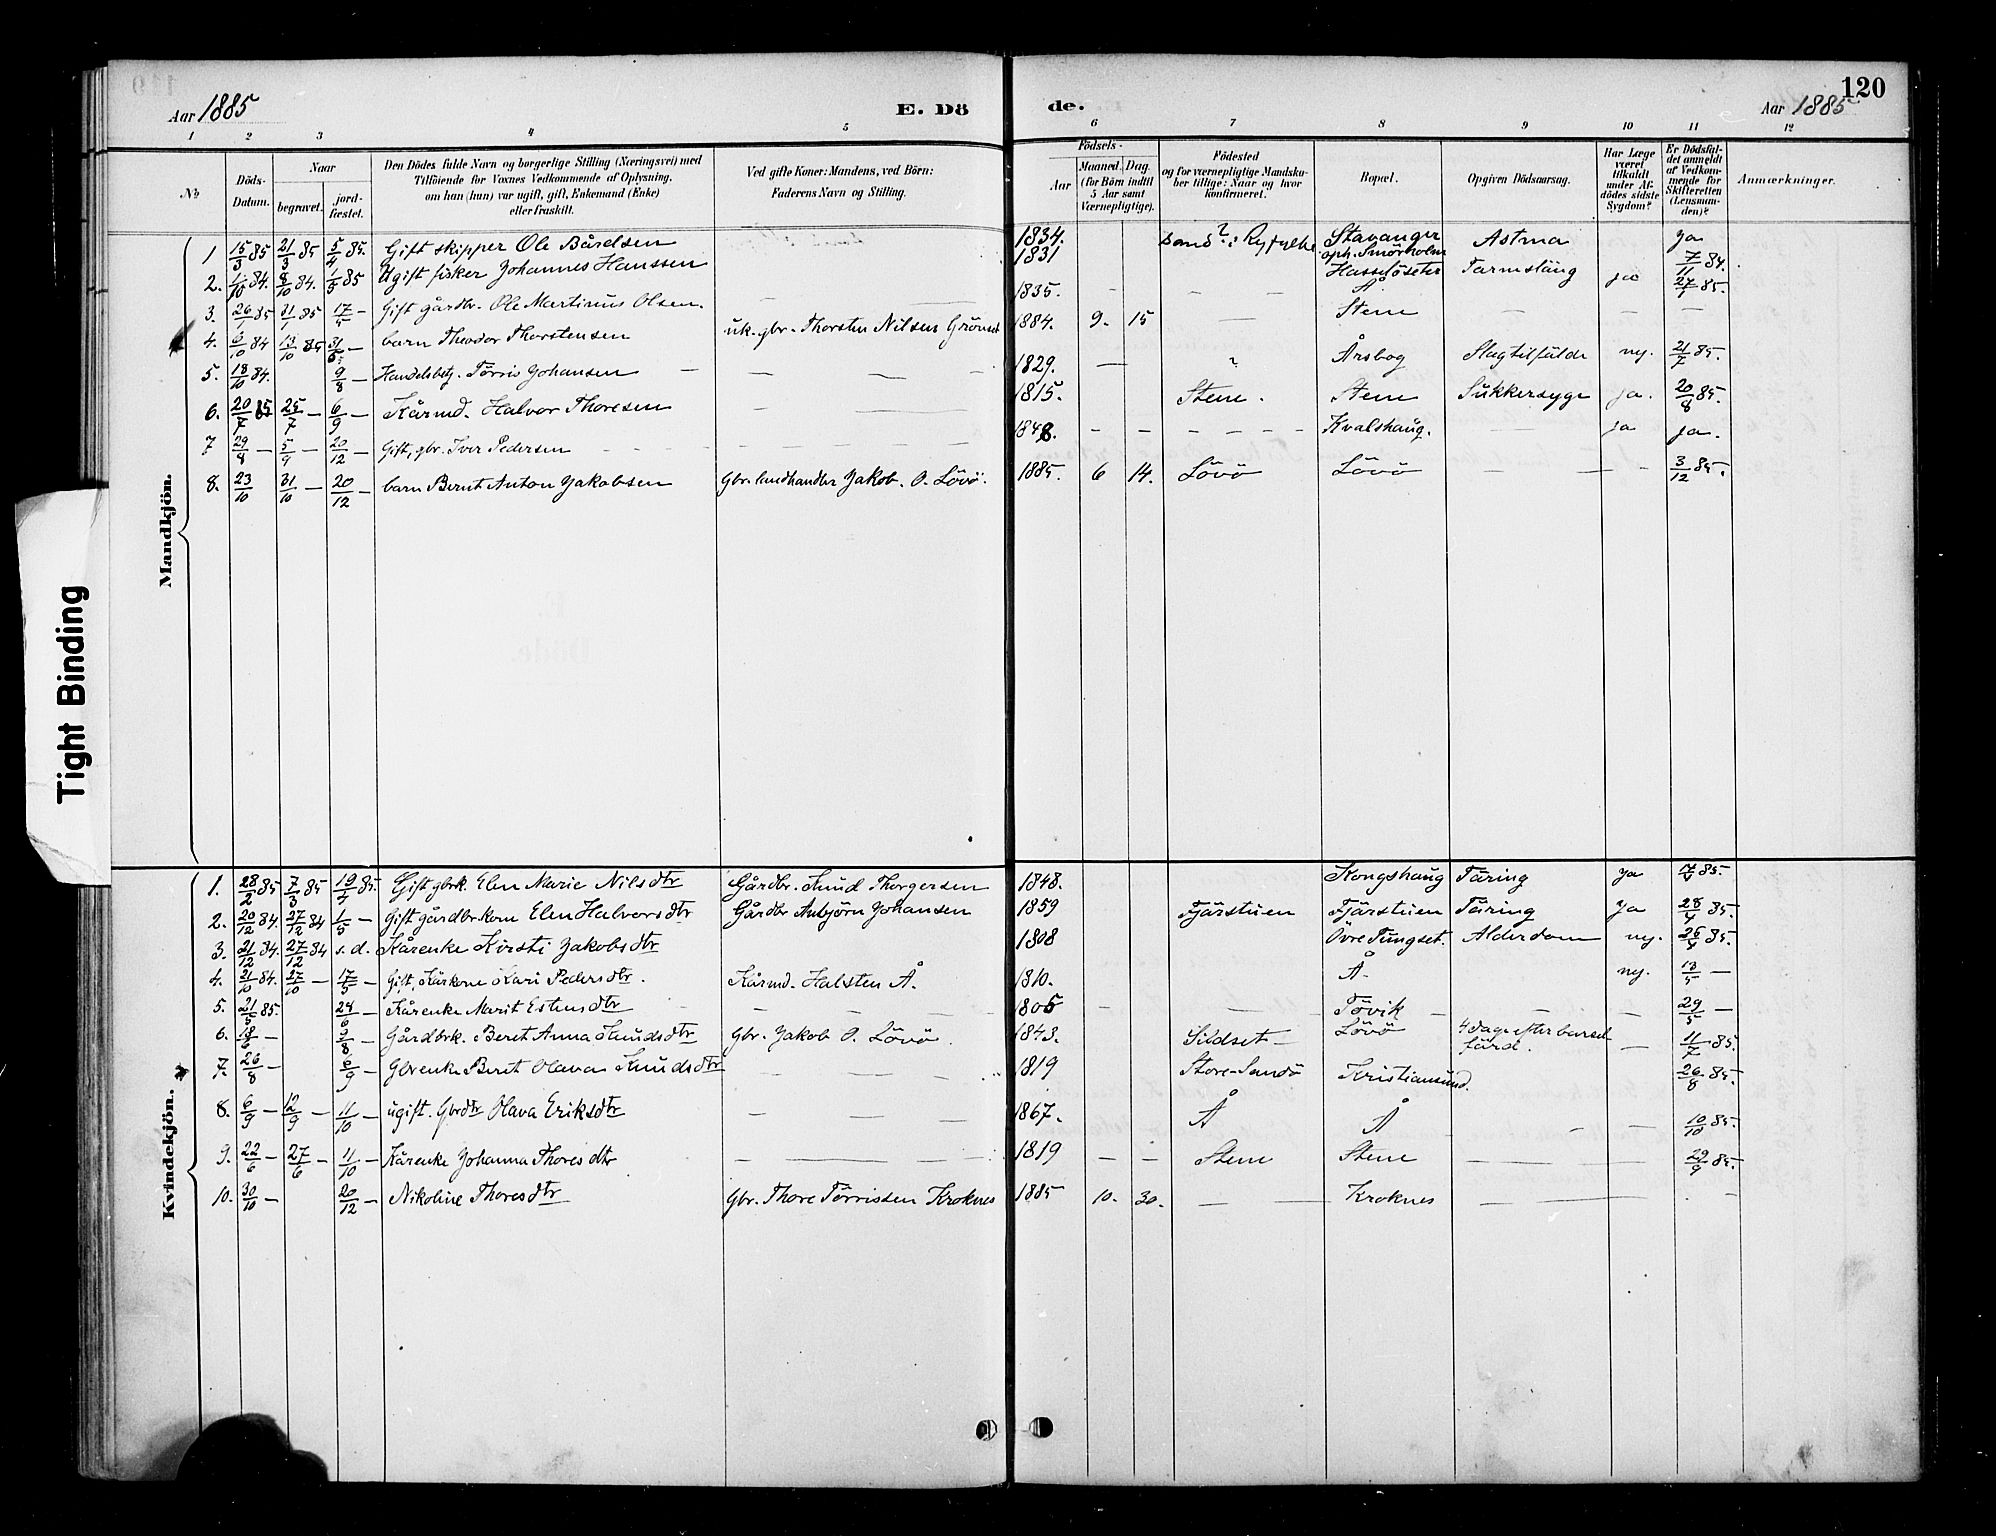 120
Aar 1885 E. Dö de. Aar 1885
1 2 3 4 5 6 7 8 9 10 11 12
No
Döds-Datum.
Naar
begravet.
jord-fæstet.
Den Dödes fulde Navn og borgerlige Stilling (Næringsvei) med
Tilföiende for Voxnes Vedkommende af Oplysning,
om han (hun) var ugift, gift, Enkemand (Enke)
eller fraskilt.
Ved gifte Koner: Mandens, ved Börn:
Faderens Navn og Stilling.
Födsels-
Aar
Maaned. Dag.
(for Börn indtil
5 Aar samt
Værnepligtige).
Födested
og for værnepligtige Mandsku-
ber tillige: Naar og hvor
konfirmeret.
Bopæl.
Opgiven Dödsaarsag.
Har Læge
været
tilkaldt
under Af-
dödes sidste
Sygdom?
Er Dödsfal-
det anmeldt
af Vedkom-
mende for
Skifteretten
(Lensman-
den)?
Anmærkninger.
Mandkjön.
1 15/3 85 21/3 85 5/4 85. Gift skipper Ole Bårdsen 1834. Sand?: Ryfylke Stavanger Astma ja
2. 1/10 84. 8/10 84. 1/5 85 Ugift fisker Johannes Hanssen 1831 oph. Smörholm Hasselösetet Tarmslång ja 7/11 84.
3. 26/1 85 31/1 85 17/5 — Gift gårdbr. Ole Martinus Olsen. — — 1835. - — — Å 27/1 85.
4. 6/10 84 13/10 85 31/5 — barn Theodor Thorstensen uk. gbr. Thorsten Nilsen Grönset 1884. 9. 15 Stene — — —
5. 18/10 84. 9/8 — Handelsbetj. Törris Johansen — — — 1829. — " Årsbog Slagtilfälde ny. 21/7 85.
6. 20/7 85 25/7 — 6/9 — Kårmd. Halvor Thoresen — — 1815. Stene. Stene Sukkersyge ja. 20/8 85.
7 29/8 — 5/9 — 20/12 — Gift, gbr. Iver Pedersen — — — 1848. - - - - - Kvalshaug. — ja ja.
8. 23/10 31/10 — 20/12 — barn Bernt Anton Jakobsen Gbr. landhandler Jakob. O. Lövö. 1885. 6 14. Lövö Lövö — — - 3/12 85.
Kvindekjön.
1. 28/2 85 7/3 85 19/4 85. Gift gbrk. Elen Marie Nilsdtr Gårdbr. Knud Thorgersen 1848. Kongshaug Täring ja 17/4 85.
2. 20/12 84. 27/12 84 1/5 — Gift gårdbrkone Elen Halvorsdtr Gårdbr Anbjörn Johansen 1859 Fjärstuen Fjärstuen Täring ja 28/4 85.
3. 21/12 84. 27/12 84 s.d. Kårenke Kirsti Jakobsdtr 1808 Övre Tungset. Alderdom ny. 25/4 85.
4. 21/10 84. 27/10 — 17/5 — Gift, Kårkone Kari Pedersdtr. Kårmd. Halsten Å. 1810. Å. ny. 13/5 —
5. 21/5 85. 24/6 — Kårenke Marit Estensdtr — — — 1805 - — — Tövik — — — 29/5 —
6. 18/6 — 9/8 — Gårdbrk. Beret Anna Knudsdtr Gbr. Jakob O. Lövö. 1843. Sildset — Lövö 4 dage efter barsel-
färd. — 11/7 85.
7. 26/8 — 6/9 — Gbrenke Beret Olava Knudsdtr — — — 1819 Store-Sandö Kristiansund. 26/8 85.
8. 6/9 — 12/9 — 11/10 — ugift. Gbrdtr Olava Eriksdtr — — — 1867. Å Å - — 10/10 85.
9. 22/6 — 27/6 — 11/10 — Kårenke Johanna Thoresdtr — — — 1819 — — Stene Stene — — — 29/9 85.
10. 30/10 — 20/12 — Nikoline Thoresdtr Gbr. Thore Törrissen Kroknes 1885 10. 30. — — Kroknes — — -
Tight Binding